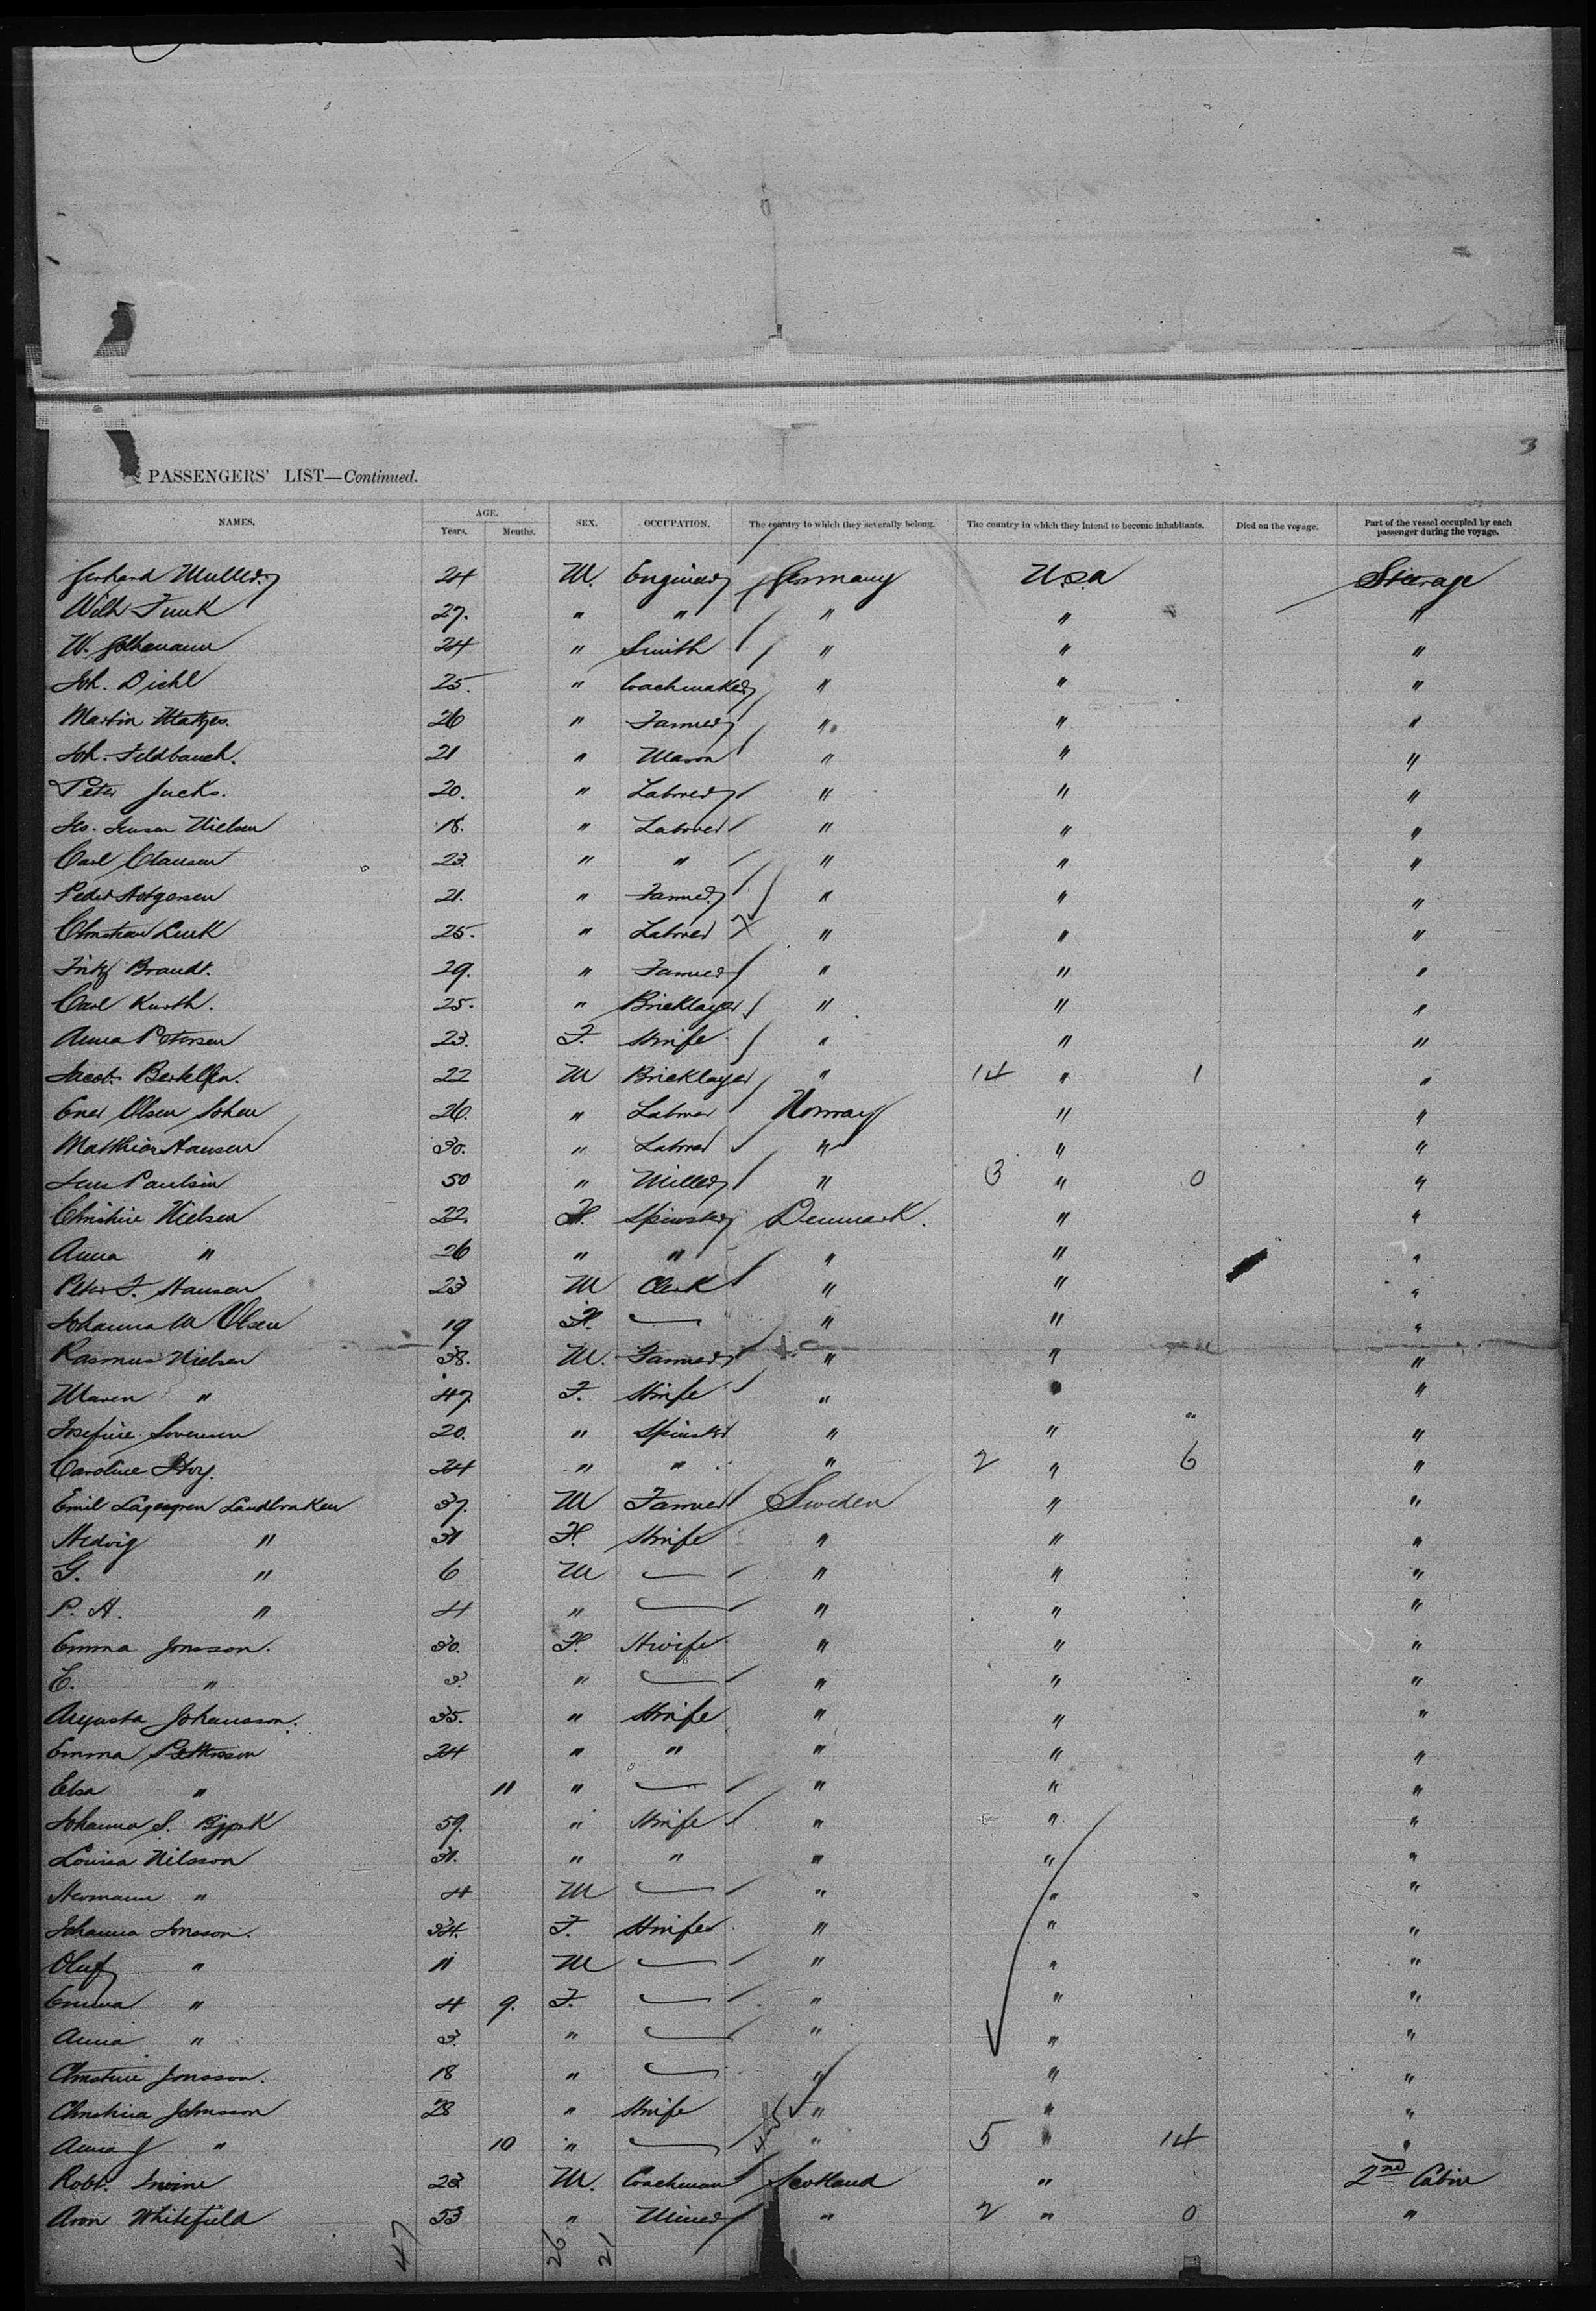 3
PASSENGERS' LIST—Continued.
NAMES. AGE. Years. Months. SEX. OCCUPATION. The country to which they severally belong. The country in which they intend to become inhabitants. Died on the voyage. Part of the vessel occupied by each passenger during the voyage.
Gerhard Muller 24 M. Engineer Germany U.S.A Steerage
Wilh Funk 27. " " " " "
W. 24 " Smith " " "
Joh. Diehl 25. " Coachmaker " " "
Martin Matzes. 26 " Farmer " " "
Joh. Feldbauch. 21 " Mason " " "
Peter Jucks. 20. " Laborer " " "
Jes. Jensen Nielsen 18. " Laborer " " "
Carl Clausen 23. " " " " "
Peder 21. " Farmer " " "
Christian Luck 25. " Laborer " " "
Fritz Brandt. 29. " Farmer " " "
Carl Kurth. 25. " Bricklayer " " "
Anna Petersen 23. F. Hwife " " "
Jacob Bertelsen. 22 M Bricklayer " 14 " 1 "
Olsen 26. " Laborer Norway " "
Matthias Hansen 30. " Laborer " " "
Jens Paulsen 50 " Miller " 3 " 0 "
Christine Nielsen 22. F. Spinster Denmark. " "
Anna " 26 " " " " "
Peter F. Hansen 23 M Clerk " " "
Johanna M Olsen 19 F. — " " "
Rasmus Nielsen 38. M. Farmer " " "
Maren " 47 F. Hwife " "
Josefine Sorensen 20. " Spinster " " "
Caroline 24 " " " 2 " 6 "
Emil Lagergren Landbraken 37. M Farmer Sweden " "
Hedvig " 31 F. Hwife " " "
G. " 6 M — " " "
P. A. " 4 " — " " "
Emma Jonsson. 30. F. Hwife " " "
E. " 3. " — " " "
Augusta Johansson. 35. " Hwife " " "
Emma Pettersson 24 " " " " "
Elsa " 11 " — " " "
Johanna S. Bjork 59. " Hwife " " "
Louisa Nilsson 31. " " " " "
Hermann " 4 M — " " "
Johanna Jonsson. 34. F. Hwife " " "
Oluf " 11 M — " " "
Emma " 4 9. F. — " " "
Anna " 3. " — " " "
Christine Jonsson. 18 " — " " "
Christina Johnsson 28 " Hwife " " "
Anna J " 10 " — " 5 " 14 "
Robt. Irvine 23 M. Coachman Scotland " 2nd Cabin
Aron Whitefield 53 " Miner " 2 " 0 "
47 26 21